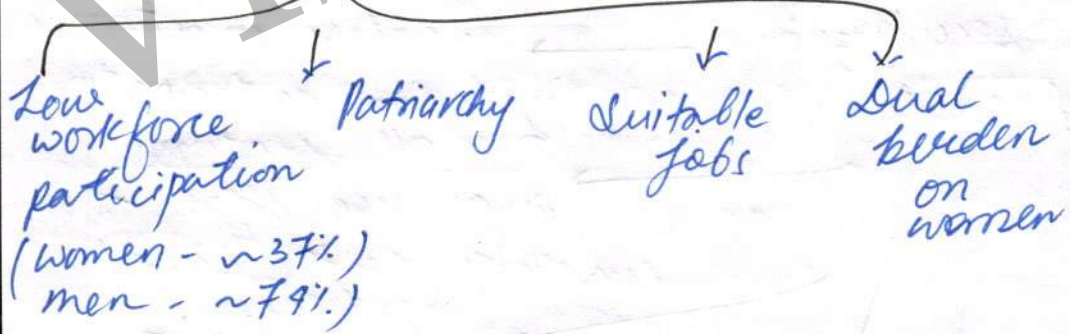 Low workforce participation
(women - ~37%)
men - ~79%)
Patriarchy
Suitable
Jobs
Dual
burden
on
women